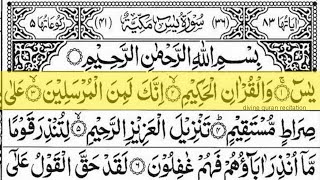 اٰیَاتُهَا ٨٣ (٣٦) سُوْرَةُ یٰسٓ مَكِّیَّةٌ (٤١) رُكُوْعَاتُهَا ٥
بِسْمِ اللّٰهِ الرَّحْمٰنِ الرَّحِیْمِ
یٰسٓ ۚ﴿١﴾ وَالْقُرْاٰنِ الْحَكِیْمِ ۙ﴿٢﴾ اِنَّكَ لَمِنَ الْمُرْسَلِیْنَ ۙ﴿٣﴾ عَلٰی
divine quran recitation
صِرَاطٍ مُّسْتَقِیْمٍ ؕ﴿٤﴾ تَنْزِیْلَ الْعَزِیْزِ الرَّحِیْمِ ۙ﴿٥﴾ لِتُنْذِرَ قَوْمًا
مَّاۤ اُنْذِرَ اٰبَآؤُهُمْ فَهُمْ غٰفِلُوْنَ ﴿٦﴾ لَقَدْ حَقَّ الْقَوْلُ عَلٰۤی